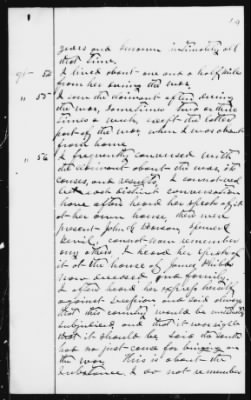 years and became intimately all
that time.
Qr 52 I lived about one and a half mile
from her during the war
" 55 I saw the claimant often during
the war, sometimes two or three
times a week, except the latter
part of the war, when I was absent
from home
" 56 I frequently conversed with
the claimant about the war, its
causes, and results. I cannot now
distinct conversation
have often heard her speak of it
at her own house, there were
present John R.
cannot now remember
any others I heard her speak of
it at the house of James
now deceased and family.
I often heard her express herself
against secession and said always
that this country would be entirely
subjugated and that it was right
that it should be, said the South
had no just cause for bringing on
the war This is about the
substance, I do not remember